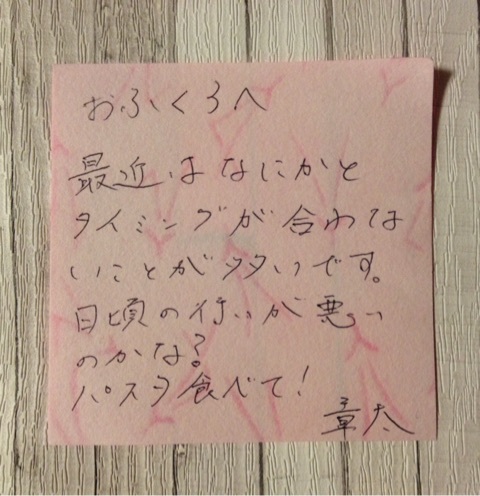 おふくろへ
最近はなにかと
タイミングが合わな
いことが多いです。
日頃の行いが悪い
のかな？
パスタ食べて！
章太